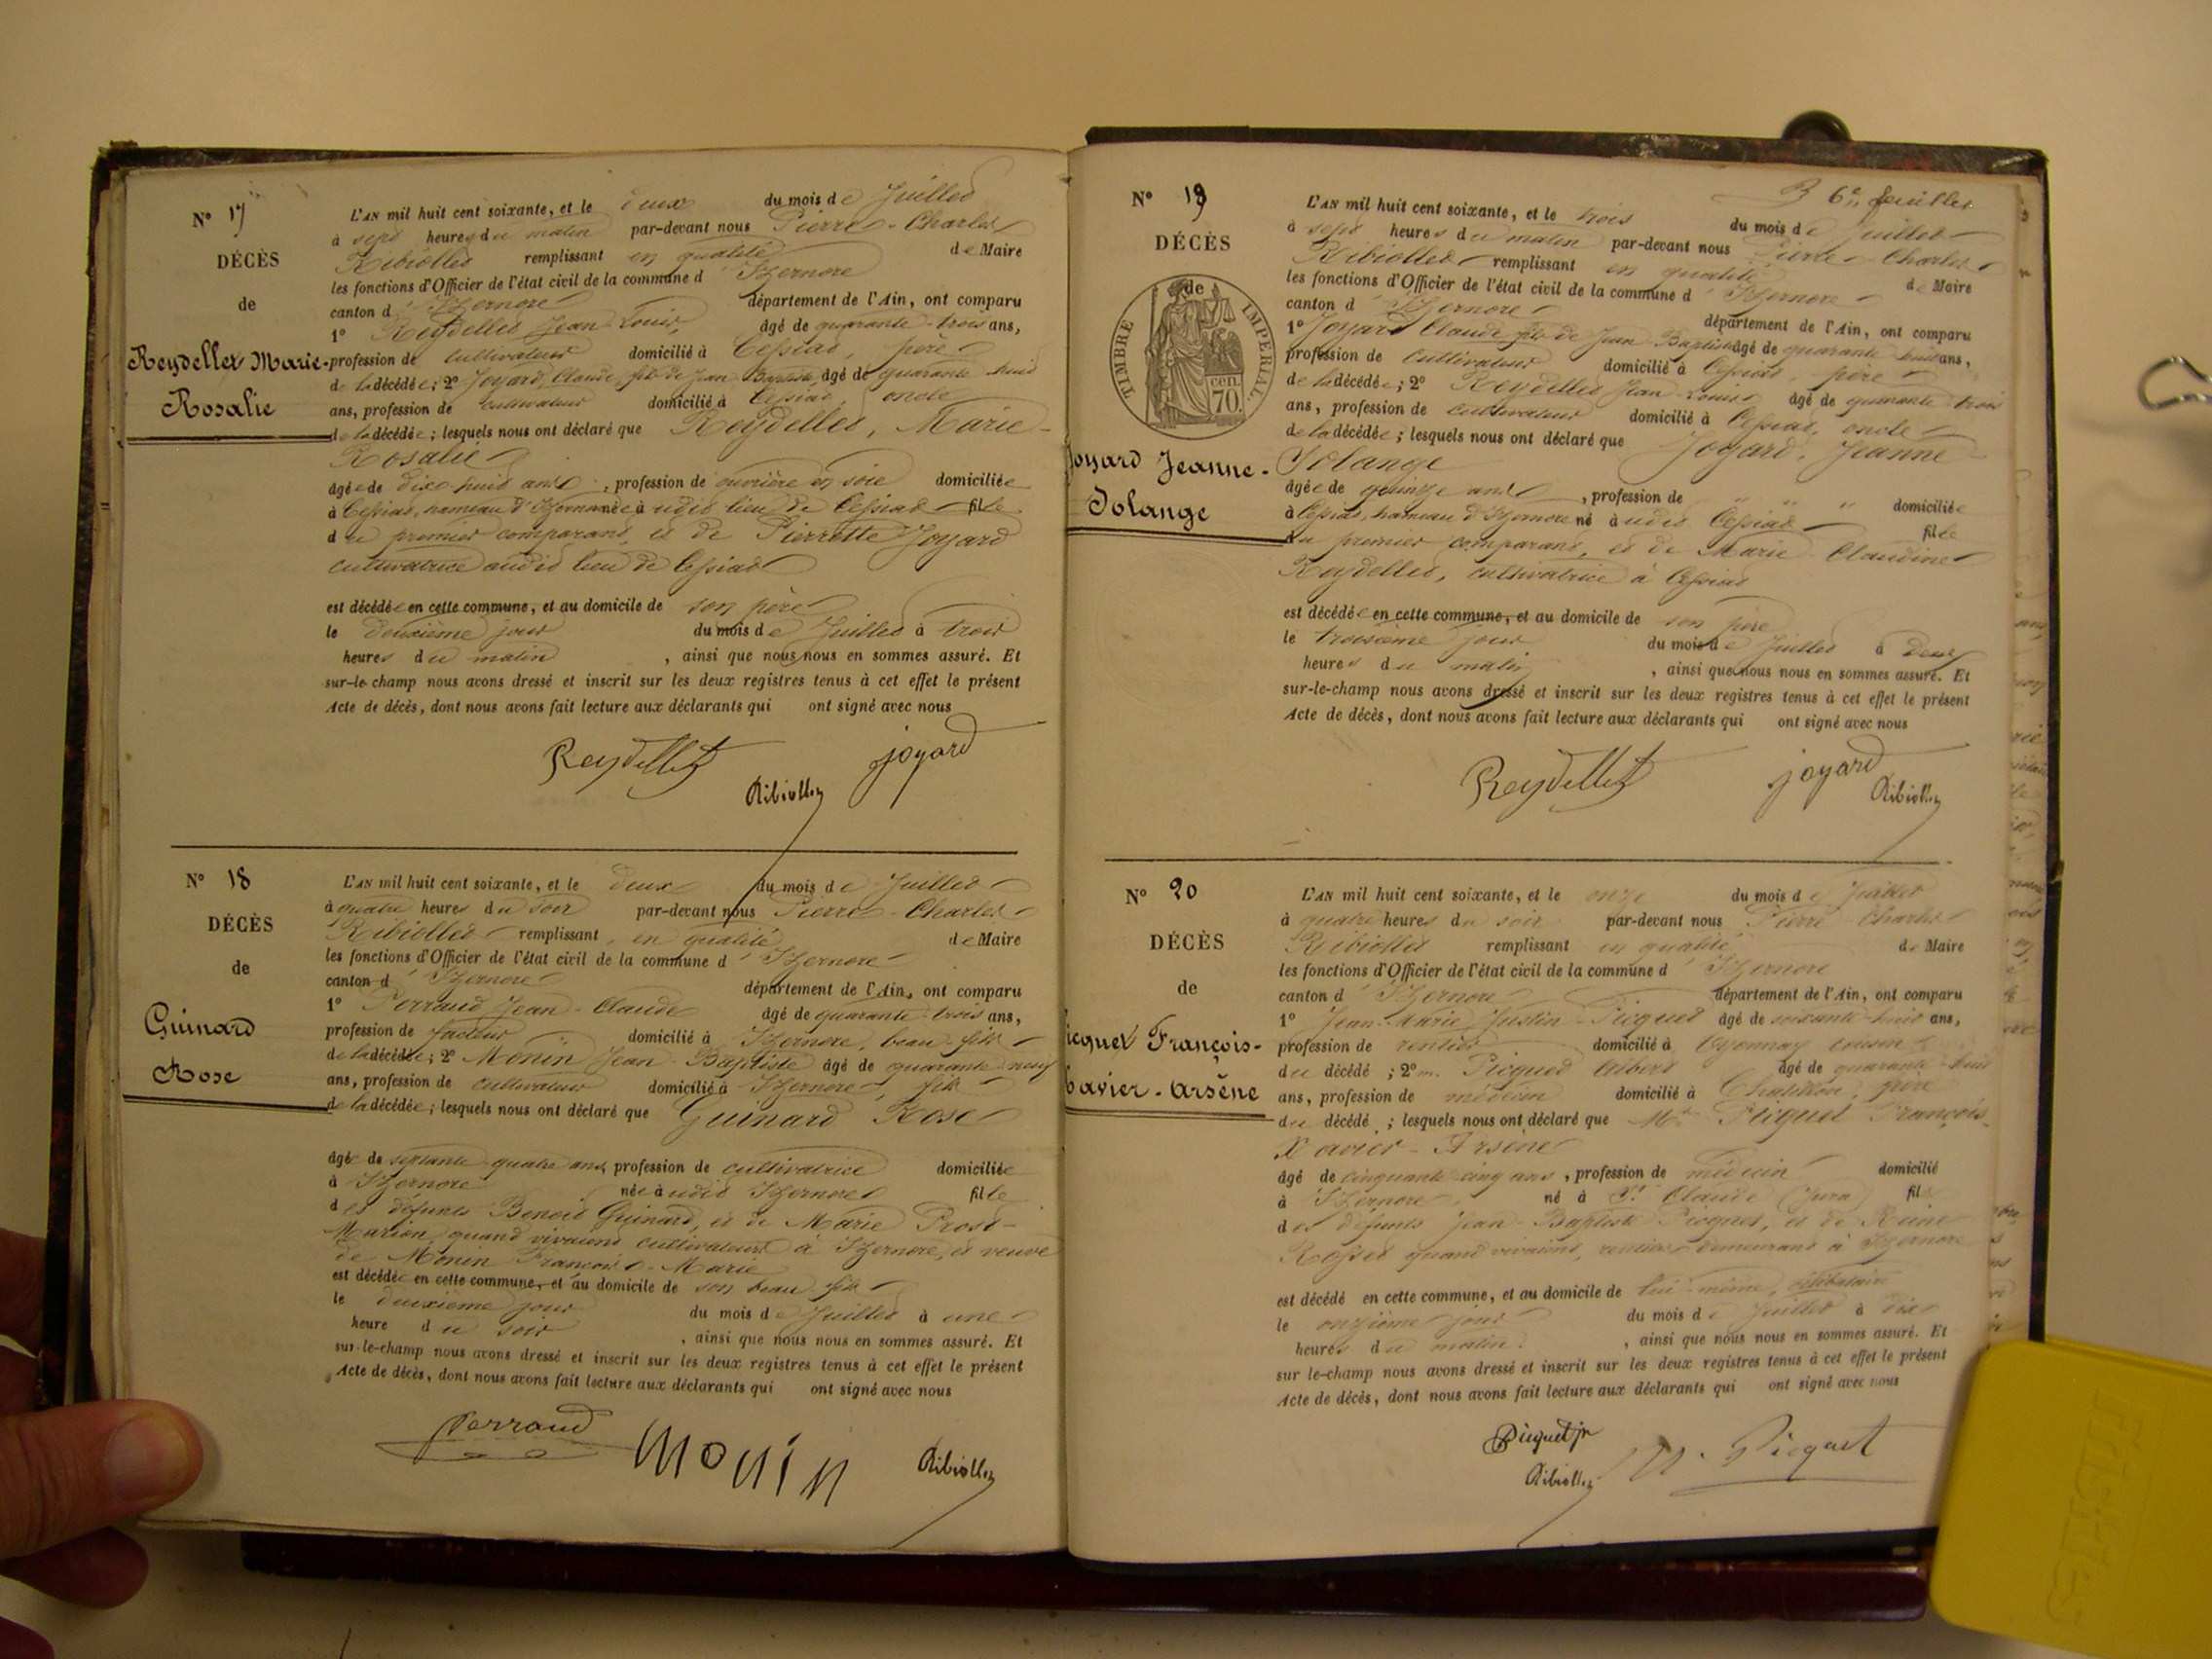 N° 17
DÉCÈS
de
Reydellet Marie-
Rosalie
L'AN mil huit cent soixante, et le deux du mois de Juillet
à sept heures du matin par-devant nous Pierre-Charles
Ribiollet remplissant en qualité de Maire
les fonctions d'Officier de l'état civil de la commune d'Izernore
canton d'Izernore département de l'Ain, ont comparu
1° Reydellet Jean-Louis, âgé de quarante-trois ans,
profession de cultivateur domicilié à Cessiat, père
de la décédée; 2° Joyard, Claude fils de Jean-Baptiste, âgé de quarante-huit
ans, profession de cultivateur domicilié à Cessiat, oncle
de la décédée; lesquels nous ont déclaré que Reydellet, Marie-
Rosalie
âgée de dix-huit ans, profession de ouvrière en soie domiciliée
à Cessiat, hameau d'Izernore née audit lieu de Cessiat fille
du premier comparant, et de Pierrette Joyard
cultivatrice audit lieu de Cessiat
est décédée en cette commune, et au domicile de son père
le deuxième jour du mois de Juillet à trois
heures du matin, ainsi que nous nous en sommes assuré. Et
sur-le-champ nous avons dressé et inscrit sur les deux registres tenus à cet effet le présent
Acte de décès, dont nous avons fait lecture aux déclarants qui ont signé avec nous
Reydellet joyard
Ribiollet
N° 18
DÉCÈS
de
Guinard
Rose
L'AN mil huit cent soixante, et le deux du mois de Juillet
à quatre heures du soir par-devant nous Pierre-Charles
Ribiollet remplissant en qualité de Maire
les fonctions d'Officier de l'état civil de la commune d'Izernore
canton d'Izernore département de l'Ain, ont comparu
1° Perraud Jean-Claude âgé de quarante-trois ans,
profession de facteur domicilié à Izernore, beau-fils
de la décédée; 2° Monin Jean-Baptiste âgé de quarante-neuf
ans, profession de cultivateur domicilié à Izernore, fils
de la décédée; lesquels nous ont déclaré que Guinard Rose
âgée de septante-quatre ans, profession de cultivatrice domiciliée
à Izernore née audit Izernore fille
des défunts Benoit Guinard, et de Marie Prost-
Marion, quand vivaient cultivateurs à Izernore, et veuve
de Monin François-Marie
est décédée en cette commune, et au domicile de son beau-fils
le deuxième jour du mois de Juillet à une
heure du soir, ainsi que nous nous en sommes assuré. Et
sur-le-champ nous avons dressé et inscrit sur les deux registres tenus à cet effet le présent
Acte de décès, dont nous avons fait lecture aux déclarants qui ont signé avec nous
Perraud Monin Ribiollet
6e feuillet
N° 19
DÉCÈS
de
TIMBRE IMPERIAL
70 cen.
Joyard Jeanne-
Solange
L'AN mil huit cent soixante, et le trois du mois de juillet
à sept heures du matin par-devant nous Pierre-Charles
Ribiollet remplissant en qualité de Maire
les fonctions d'Officier de l'état civil de la commune d'Izernore
canton d'Izernore département de l'Ain, ont comparu
1° Joyard Claude fils de Jean-Baptiste âgé de quarante-huit ans,
profession de cultivateur domicilié à Cessiat, père
de la décédée; 2° Reydellet Jean-Louis âgé de quarante-trois
ans, profession de cultivateur domicilié à Cessiat, oncle
de la décédée; lesquels nous ont déclaré que Joyard, Jeanne
Solange
âgée de quinze ans, profession de " " " domiciliée
à Cessiat, hameau d'Izernore né audit Cessiat fille
du premier comparant, et de Marie-Claudine
Reydellet, cultivatrice à Cessiat
est décédée en cette commune, et au domicile de son père
le troisième jour du mois de Juillet à deux
heures du matin, ainsi que nous nous en sommes assuré. Et
sur-le-champ nous avons dressé et inscrit sur les deux registres tenus à cet effet le présent
Acte de décès, dont nous avons fait lecture aux déclarants qui ont signé avec nous
Reydellet joyard
Ribiollet
N° 20
DÉCÈS
de
icquet François-
Xavier-Arsène
L'AN mil huit cent soixante, et le onze du mois de Juillet
à quatre heures du soir par-devant nous Pierre Charles
Ribiollet remplissant en qualité de Maire
les fonctions d'Officier de l'état civil de la commune d'Izernore
canton d'Izernore département de l'Ain, ont comparu
1° Jean-Marie Justin Picquet âgé de soixante-huit ans,
profession de rentier domicilié à Oyonnax cousin
du décédé; 2° m. Picquet Aubert âgé de quarante-huit
ans, profession de médecin domicilié à Chatillon, frère
du décédé; lesquels nous ont déclaré que Mr Picquet François-
Xavier-Arsène
âgé de cinquante-cinq ans, profession de médecin domicilié
à Izernore, né à St Claude (Jura) fils
des défunts Jean-Baptiste Picquet, et de Reine
Rosset quand vivaient, rentiers demeurant à Izernore
est décédé en cette commune, et au domicile de lui-même, célibataire
le onzième jour du mois de Juillet à dix
heures du matin, ainsi que nous nous en sommes assuré. Et
sur le-champ nous avons dressé et inscrit sur les deux registres tenus à cet effet le présent
Acte de décès, dont nous avons fait lecture aux déclarants qui ont signé avec nous
Picquet jn Picquet
Ribiollet